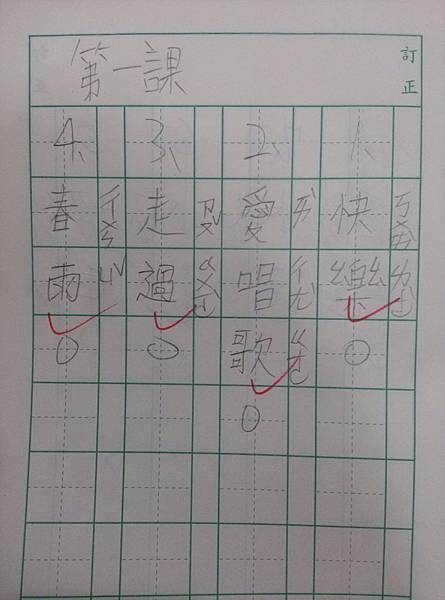 訂正
第一課
1、快樂。
ㄎㄨㄞˋ ㄌㄜˋ
2、愛唱歌。
ㄞˋ ㄔㄤˋ ㄍㄜ
3、走過。
ㄗㄡˇ ㄍㄨㄛˋ
4、春雨。
ㄔㄨㄣ ㄩˇ